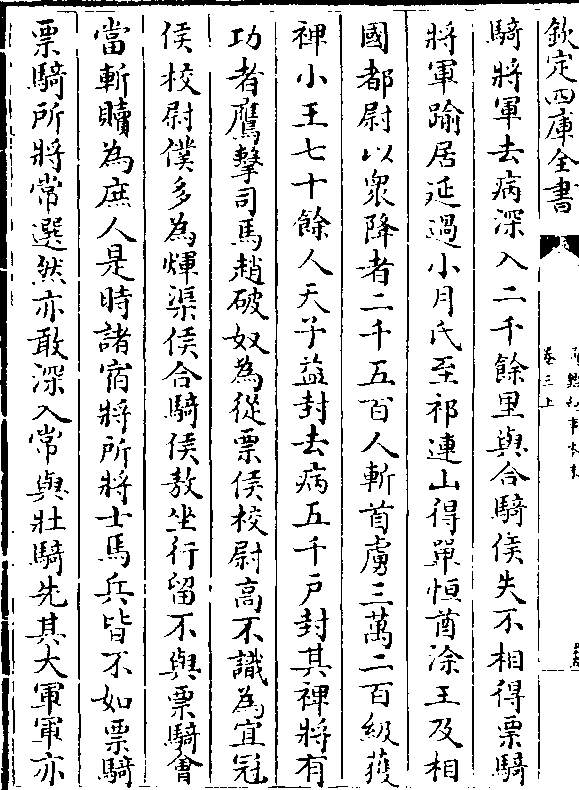 欽定四庫全書
卷三上
騎將軍去病深入二千餘里與合騎侯失不相得票騎
將軍踰居延過小月氏至祁連山得單恒酋涂王及相
國都尉以衆降者二千五百人斬首虜三萬二百級獲
裨小王七十餘人天子益封去病五千戶封其裨將有
功者鷹擊司馬趙破奴為從票侯校尉高不識為宜冠
侯校尉僕多為煇渠侯合騎侯敖坐行留不與票騎會
當斬贖為庶人是時諸宿將所將士馬兵皆不如票騎
票騎所將常選然亦敢深入常與壯騎先其大軍軍亦